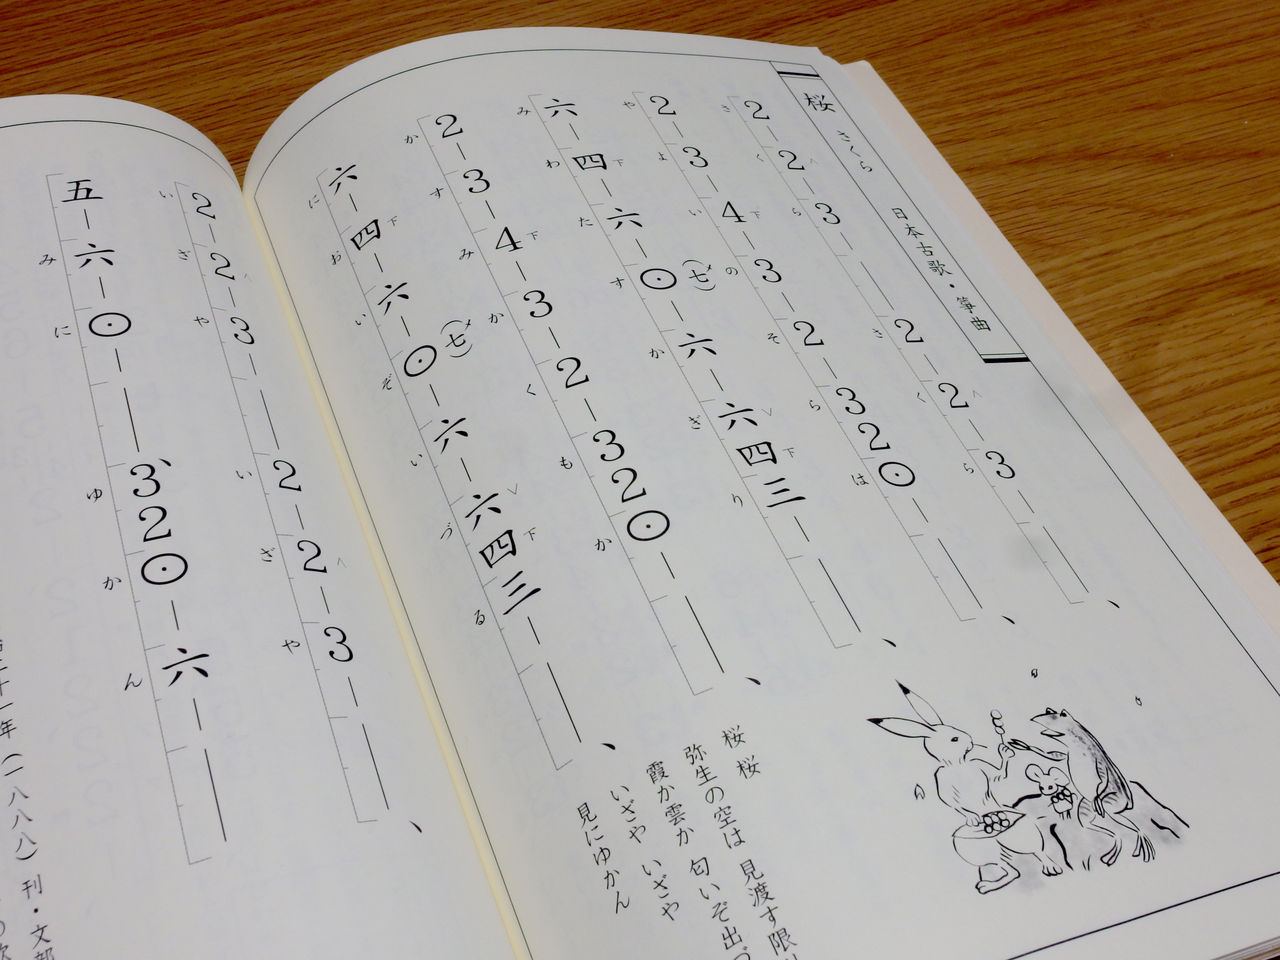 桜 さくら 日本古歌・箏曲
2 2 ^ 3 2 2 ^ 3 、
さ く ら さ く ら
2 3 4 下 3 2 3 2 ⊙ 、
や よ い の そ ら は
六 四 下 六 ⊙ (七メ) 六 六 ∨ 四 下 三 、
み わ た す か ぎ り
2 3 4 下 3 2 3 2 ⊙ 、
か す み か く も か
六 四 下 六 ⊙ (七メ) 六 六 ∨ 四 下 三 、
に お い ぞ い づ る
2 2 ^ 3 2 2 ^ 3 、
い ざ や い ざ や
五 六 ⊙ 3、 2 ⊙ 六
み に ゆ か ん
桜 桜
弥生の空は 見渡す限
霞か雲か 匂いぞ出づ
いざや いざや
見にゆかん
年(一八八八)刊・文部